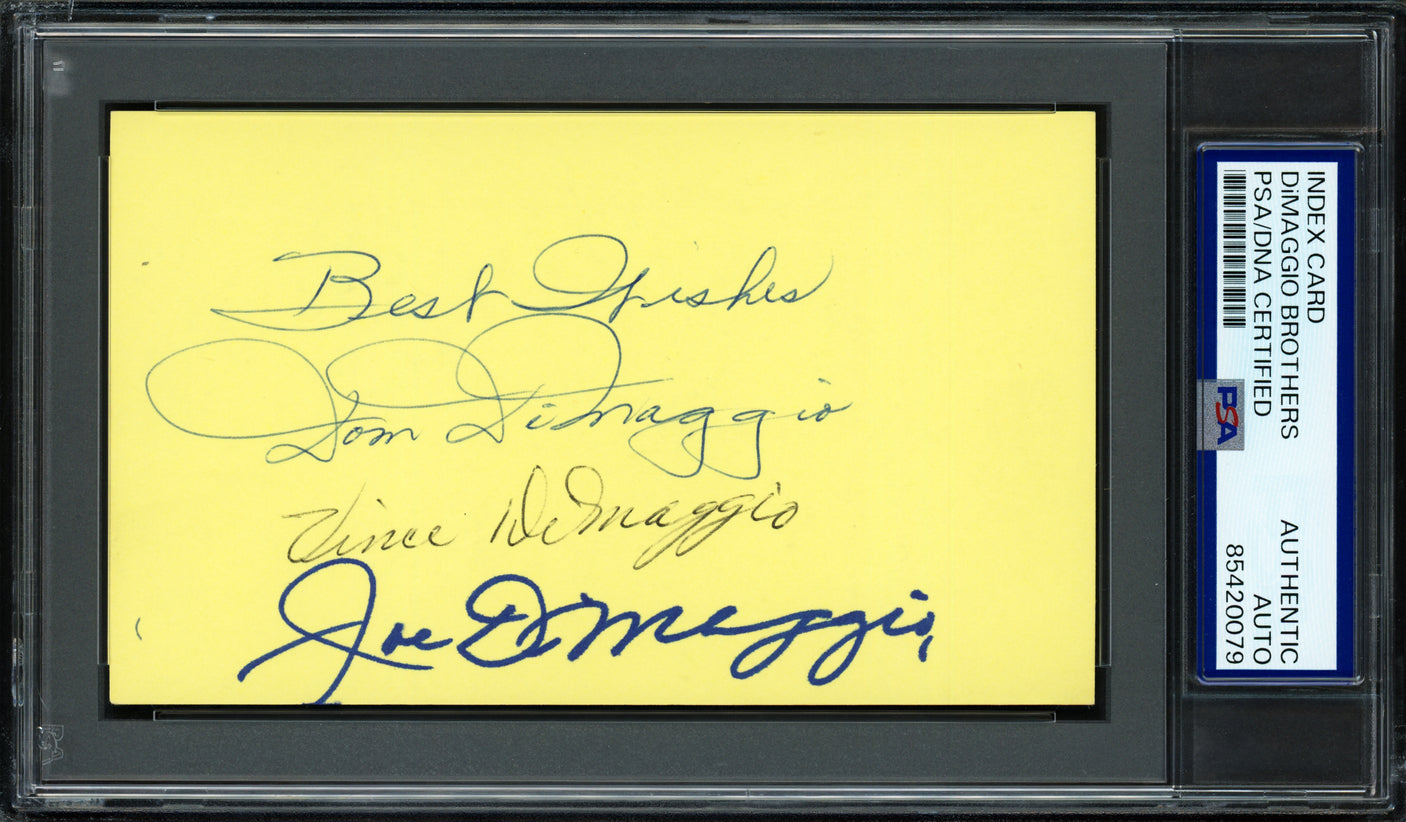 Best Wishes
Dom DiMaggio
Vince DiMaggio
Joe DiMaggio
INDEX CARD
DiMAGGIO BROTHERS
PSA/DNA CERTIFIED
AUTHENTIC
AUTO
85420079
PSA